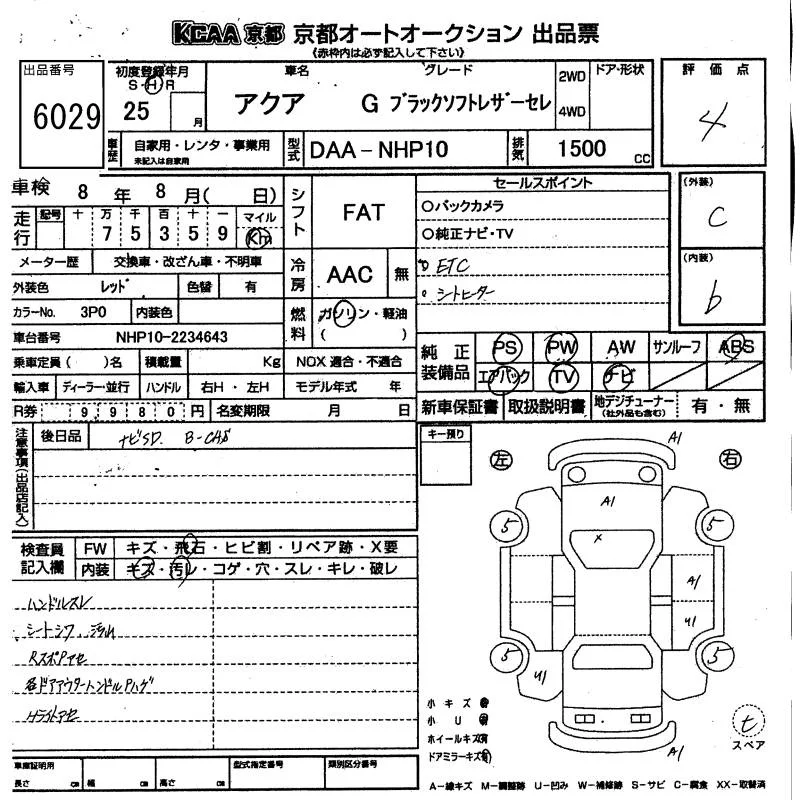 KCAA 京都 京都オートオークション 出品票
《赤枠内は必ず記入して下さい》
出品番号
6029
初度登録年月
S・H・R
25 月
車名
アクア
グレード
G ブラックソフトレザーセレ
2WD
4WD
ドア・形状
評価点
4
車歴
自家用・レンタ・事業用
未記入は自家用
型式
DAA-NHP10
排気
1500 CC
車検 8年 8月( 日)
走行
記号 十 万 千 百 十 一 マイル
7 5 3 5 9 Km
メーター歴 交換車・改ざん車・不明車
外装色 レッド 色替 有
カラーNo. 3P0 内装色
車台番号 NHP10-2234643
乗車定員( )名 積載量 Kg NOX適合・不適合
輸入車 ディーラー・並行 ハンドル 右H・左H モデル年式 年
R券 9980円 名変期限 月 日
シフト
FAT
冷房
AAC 無
燃料
ガソリン・軽油
( )
セールスポイント
○バックカメラ
○純正ナビ・TV
○ETC
○シートヒーター
(外装)
C
(内装)
b
純正装備品
PS PW AW サンルーフ ABS
エアバック TV ナビ
新車保証書 取扱説明書 地デジチューナー(社外品も含む) 有・無
注意事項(出品店記入)
後日品 ナビSD. B-CAS
検査員記入欄
FW キズ・飛石・ヒビ割・リペア跡・X要
内装 キズ・汚レ・コゲ・穴・スレ・キレ・破レ
ハンドルスレ
シートシワ
キー預り
左 右
A1
A1
X
5 5
A1
U1
5 5
U1
A1
小キズ 有
小U 有
ホイールキズ 有
ドアミラーキズ 有
t
スペア
車庫証明用
長さ cm 幅 cm 高さ cm
型式指定番号
類別区分番号
A-線キズ M-調整跡 U-凹み W-補修跡 S-サビ C-腐食 XX-取替済